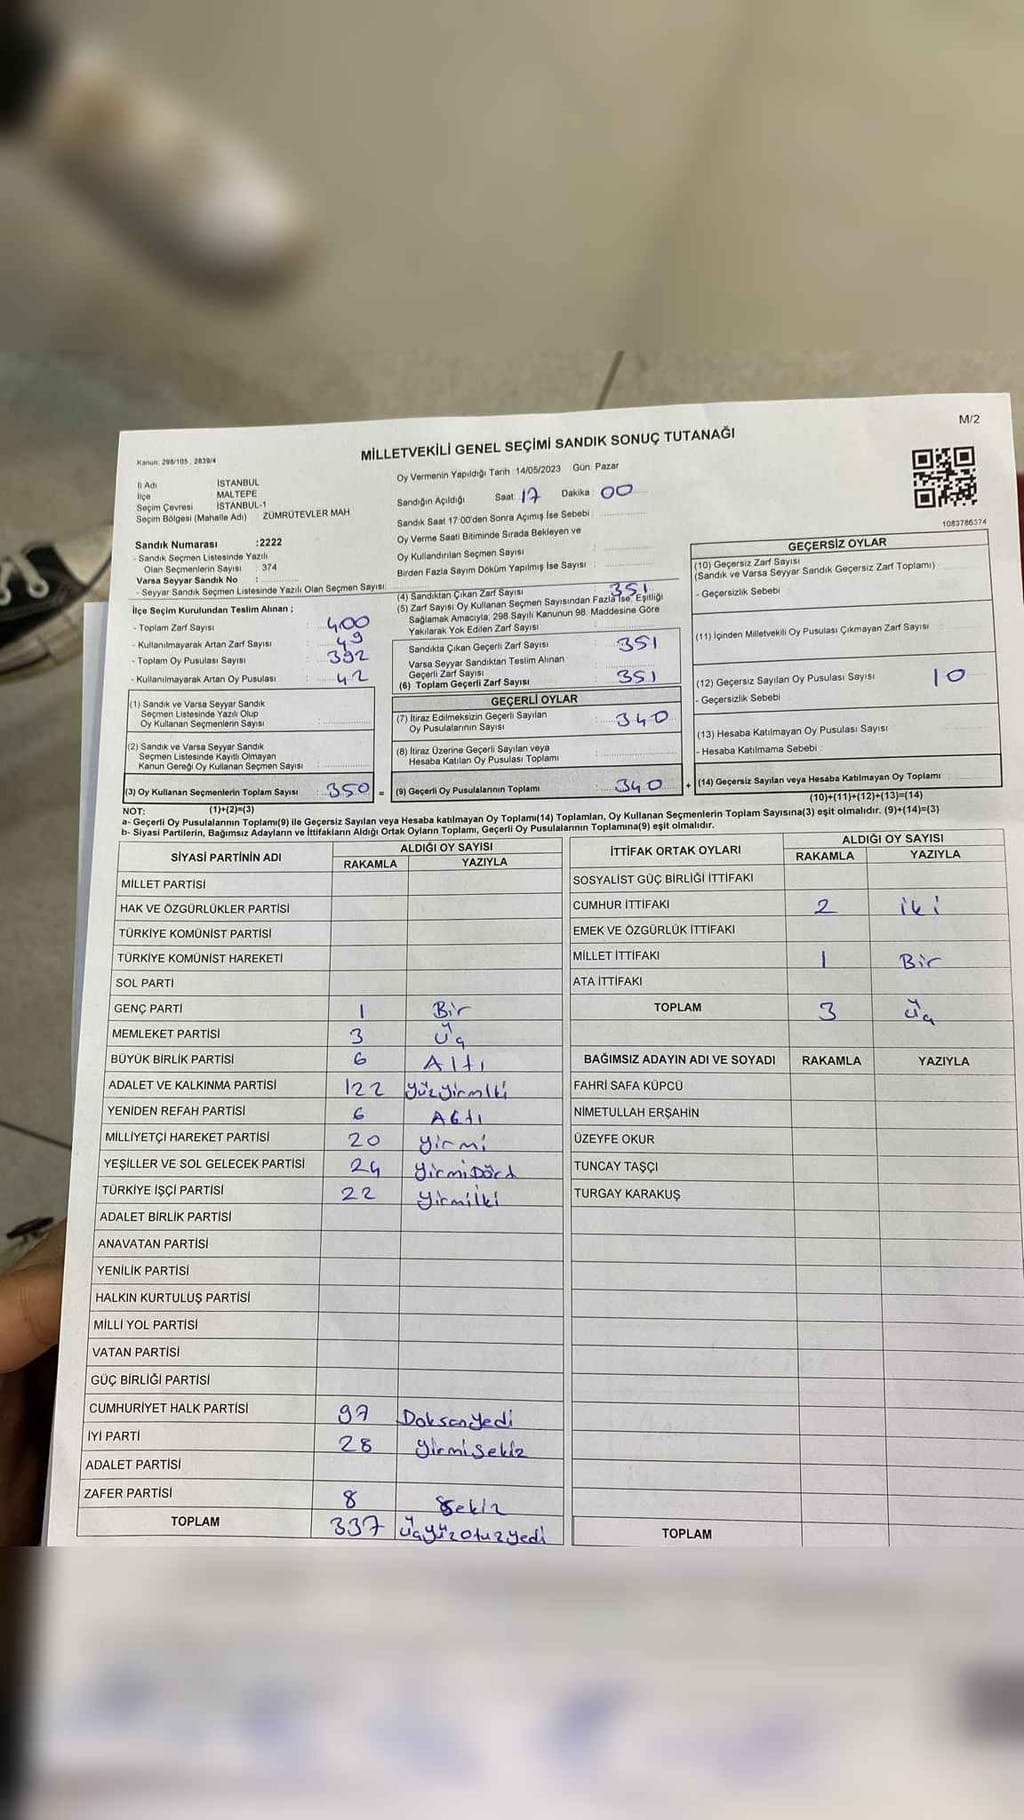 M/2
Kanun: 298/105 , 2839/4
MİLLETVEKİLİ GENEL SEÇİMİ SANDIK SONUÇ TUTANAĞI
İl Adı İSTANBUL
İlçe MALTEPE
Seçim Çevresi İSTANBUL-1
Seçim Bölgesi (Mahalle Adı) ZÜMRÜTEVLER MAH
Sandık Numarası :2222
- Sandık Seçmen Listesinde Yazılı
Olan Seçmenlerin Sayısı : 374
Varsa Seyyar Sandık No :
- Seyyar Sandık Seçmen Listesinde Yazılı Olan Seçmen Sayısı:
Oy Vermenin Yapıldığı Tarih :14/05/2023 Gün: Pazar
Sandığın Açıldığı Saat: 17 Dakika: 00
Sandık Saat 17:00'den Sonra Açımış İse Sebebi :
Oy Verme Saati Bitiminde Sırada Bekleyen ve
Oy Kullandırılan Seçmen Sayısı :
Birden Fazla Sayım Döküm Yapılmış İse Sayısı :
1083786374
İlçe Seçim Kurulundan Teslim Alınan ;
- Toplam Zarf Sayısı : 400
- Kullanılmayarak Artan Zarf Sayısı : 49
- Toplam Oy Pusulası Sayısı : 392
- Kullanılmayarak Artan Oy Pusulası : 42
(1) Sandık ve Varsa Seyyar Sandık
Seçmen Listesinde Yazılı Olup
Oy Kullanan Seçmenlerin Sayısı :
(2) Sandık ve Varsa Seyyar Sandık
Seçmen Listesinde Kayıtlı Olmayan
Kanun Gereği Oy Kullanan Seçmen Sayısı :
(3) Oy Kullanan Seçmenlerin Toplam Sayısı : 350 =
(4) Sandıktan Çıkan Zarf Sayısı : 351
(5) Zarf Sayısı Oy Kullanan Seçmen Sayısından Fazla İse, Eşitliği
Sağlamak Amacıyla, 298 Sayılı Kanunun 98. Maddesine Göre
Yakılarak Yok Edilen Zarf Sayısı :
Sandıkta Çıkan Geçerli Zarf Sayısı : 351
Varsa Seyyar Sandıktan Teslim Alınan
Geçerli Zarf Sayısı :
(6) Toplam Geçerli Zarf Sayısı : 351
GEÇERLİ OYLAR
(7) İtiraz Edilmeksizin Geçerli Sayılan
Oy Pusulalarının Sayısı : 340
(8) İtiraz Üzerine Geçerli Sayılan veya
Hesaba Katılan Oy Pusulası Toplamı :
(9) Geçerli Oy Pusulalarının Toplamı : 340 +
GEÇERSİZ OYLAR
(10) Geçersiz Zarf Sayısı
(Sandık ve Varsa Seyyar Sandık Geçersiz Zarf Toplamı) :
- Geçersizlik Sebebi :
(11) İçinden Milletvekili Oy Pusulası Çıkmayan Zarf Sayısı :
(12) Geçersiz Sayılan Oy Pusulası Sayısı : 10
- Geçersizlik Sebebi :
(13) Hesaba Katılmayan Oy Pusulası Sayısı :
- Hesaba Katılmama Sebebi :
(14) Geçersiz Sayılan veya Hesaba Katılmayan Oy Toplamı :
(10)+(11)+(12)+(13)=(14)
NOT: (1)+(2)=(3)
a- Geçerli Oy Pusulalarının Toplamı(9) ile Geçersiz Sayılan veya Hesaba Katılmayan Oy Toplamı(14) Toplamları, Oy Kullanan Seçmenlerin Toplam Sayısına(3) eşit olmalıdır. (9)+(14)=(3)
b- Siyasi Partilerin, Bağımsız Adayların ve İttifakların Aldığı Ortak Oyların Toplamı, Geçerli Oy Pusulalarının Toplamına(9) eşit olmalıdır.
SİYASİ PARTİNİN ADI ALDIĞI OY SAYISI
RAKAMLA YAZIYLA
MİLLET PARTİSİ
HAK VE ÖZGÜRLÜKLER PARTİSİ
TÜRKİYE KOMÜNİST PARTİSİ
TÜRKİYE KOMÜNİST HAREKETİ
SOL PARTİ
GENÇ PARTİ 1 Bir
MEMLEKET PARTİSİ 3 Üç
BÜYÜK BİRLİK PARTİSİ 6 Altı
ADALET VE KALKINMA PARTİSİ 122 YüzYirmİki
YENİDEN REFAH PARTİSİ 6 Altı
MİLLİYETÇİ HAREKET PARTİSİ 20 Yirmi
YEŞİLLER VE SOL GELECEK PARTİSİ 24 YirmiDört
TÜRKİYE İŞÇİ PARTİSİ 22 Yirmiİki
ADALET BİRLİK PARTİSİ
ANAVATAN PARTİSİ
YENİLİK PARTİSİ
HALKIN KURTULUŞ PARTİSİ
MİLLİ YOL PARTİSİ
VATAN PARTİSİ
GÜÇ BİRLİĞİ PARTİSİ
CUMHURİYET HALK PARTİSİ 97 DoksanYedi
İYİ PARTİ 28 YirmiSekiz
ADALET PARTİSİ
ZAFER PARTİSİ 8 Sekiz
TOPLAM 337 ÜçYüzOtuzYedi
İTTİFAK ORTAK OYLARI ALDIĞI OY SAYISI
RAKAMLA YAZIYLA
SOSYALİST GÜÇ BİRLİĞİ İTTİFAKI
CUMHUR İTTİFAKI 2 İki
EMEK VE ÖZGÜRLÜK İTTİFAKI
MİLLET İTTİFAKI 1 Bir
ATA İTTİFAKI
TOPLAM 3 Üç
BAĞIMSIZ ADAYIN ADI VE SOYADI RAKAMLA YAZIYLA
FAHRİ SAFA KÜPCÜ
NİMETULLAH ERŞAHİN
ÜZEYFE OKUR
TUNCAY TAŞÇI
TURGAY KARAKUŞ
TOPLAM